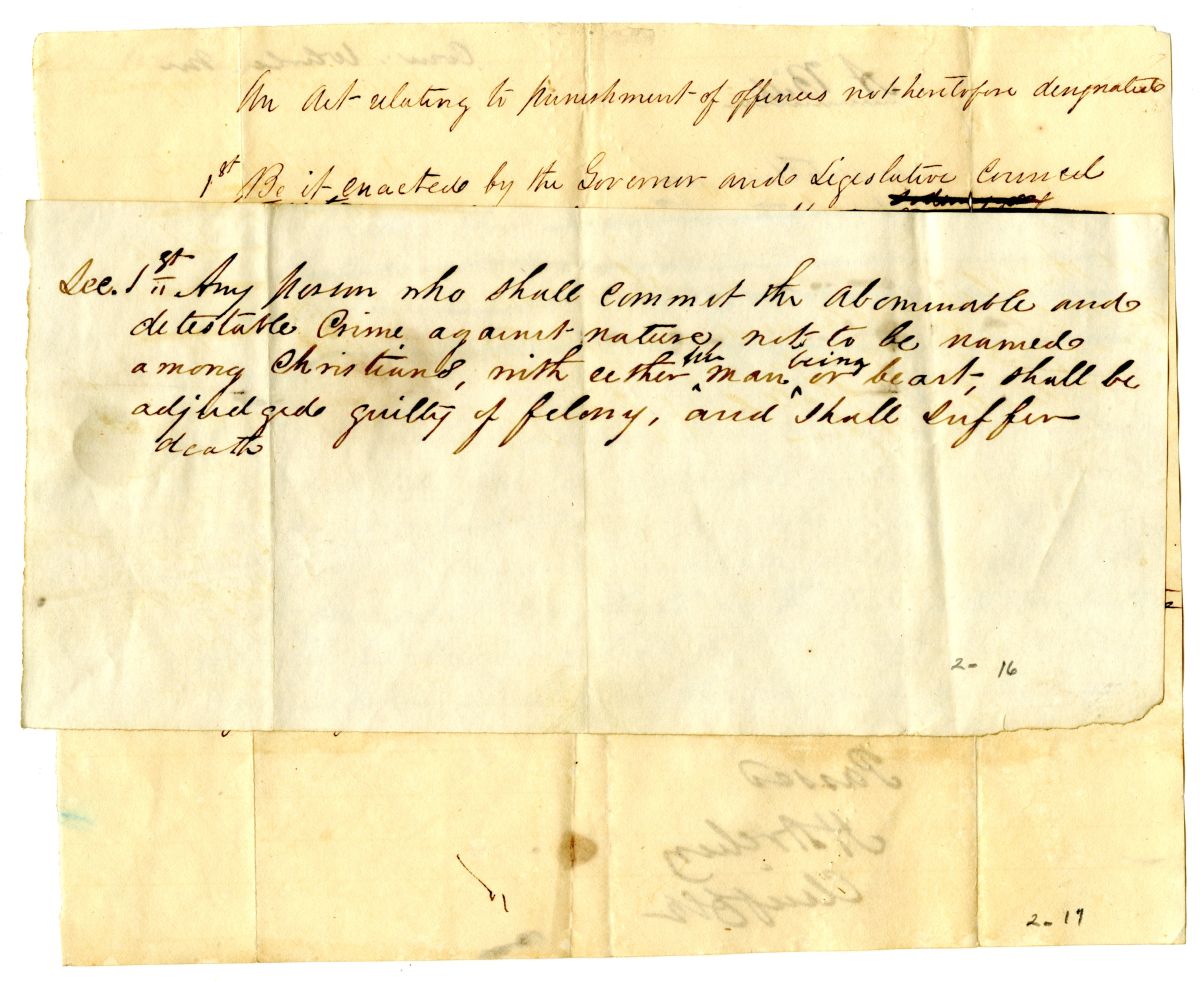 An Act relating to punishment of offences not heretofore designated
1st Be it enacted by the Governor and Legeslative Council
Sec. 1st Any person who shall commit the abominable and
detestable Crime against nature, not to be named
among Christians, with eether hu man being or beast, shall be
adjudged guilty of felony, and shall suffer
death
2- 16
Passed
Clerk
2- 17